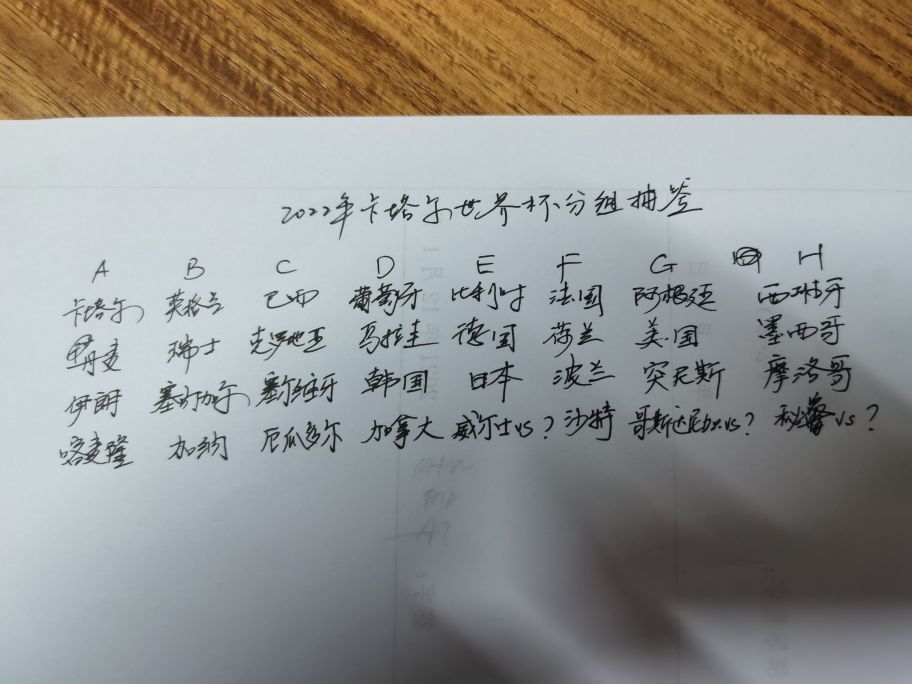 2022年卡塔尔世界杯分组抽签
A B C D E F G H
卡塔尔 英格兰 巴西 葡萄牙 比利时 法国 阿根廷 西班牙
丹麦 瑞士 克罗地亚 乌拉圭 德国 荷兰 美国 墨西哥
伊朗 塞内加尔 塞尔维亚 韩国 日本 波兰 突尼斯 摩洛哥
喀麦隆 加纳 厄瓜多尔 加拿大 威尔士vs? 沙特 哥斯达尼加vs? 秘鲁vs?